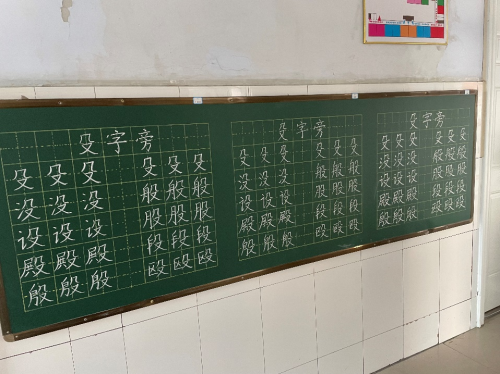 殳字旁
殳殳殳 殳殳殳
没没没 般般般
设设设 股股股
殿殿殿 段段段
殷殷殷 殴殴殴
殳字旁
殳殳殳 殳殳殳
没没没 般般般
设设设 股股股
殿殿殿 段段段
殷殷殷 殴殴殴
殳字旁
殳殳殳 殳殳殳
没没没 般般般
设设设 股股股
殿殿殿 段段段